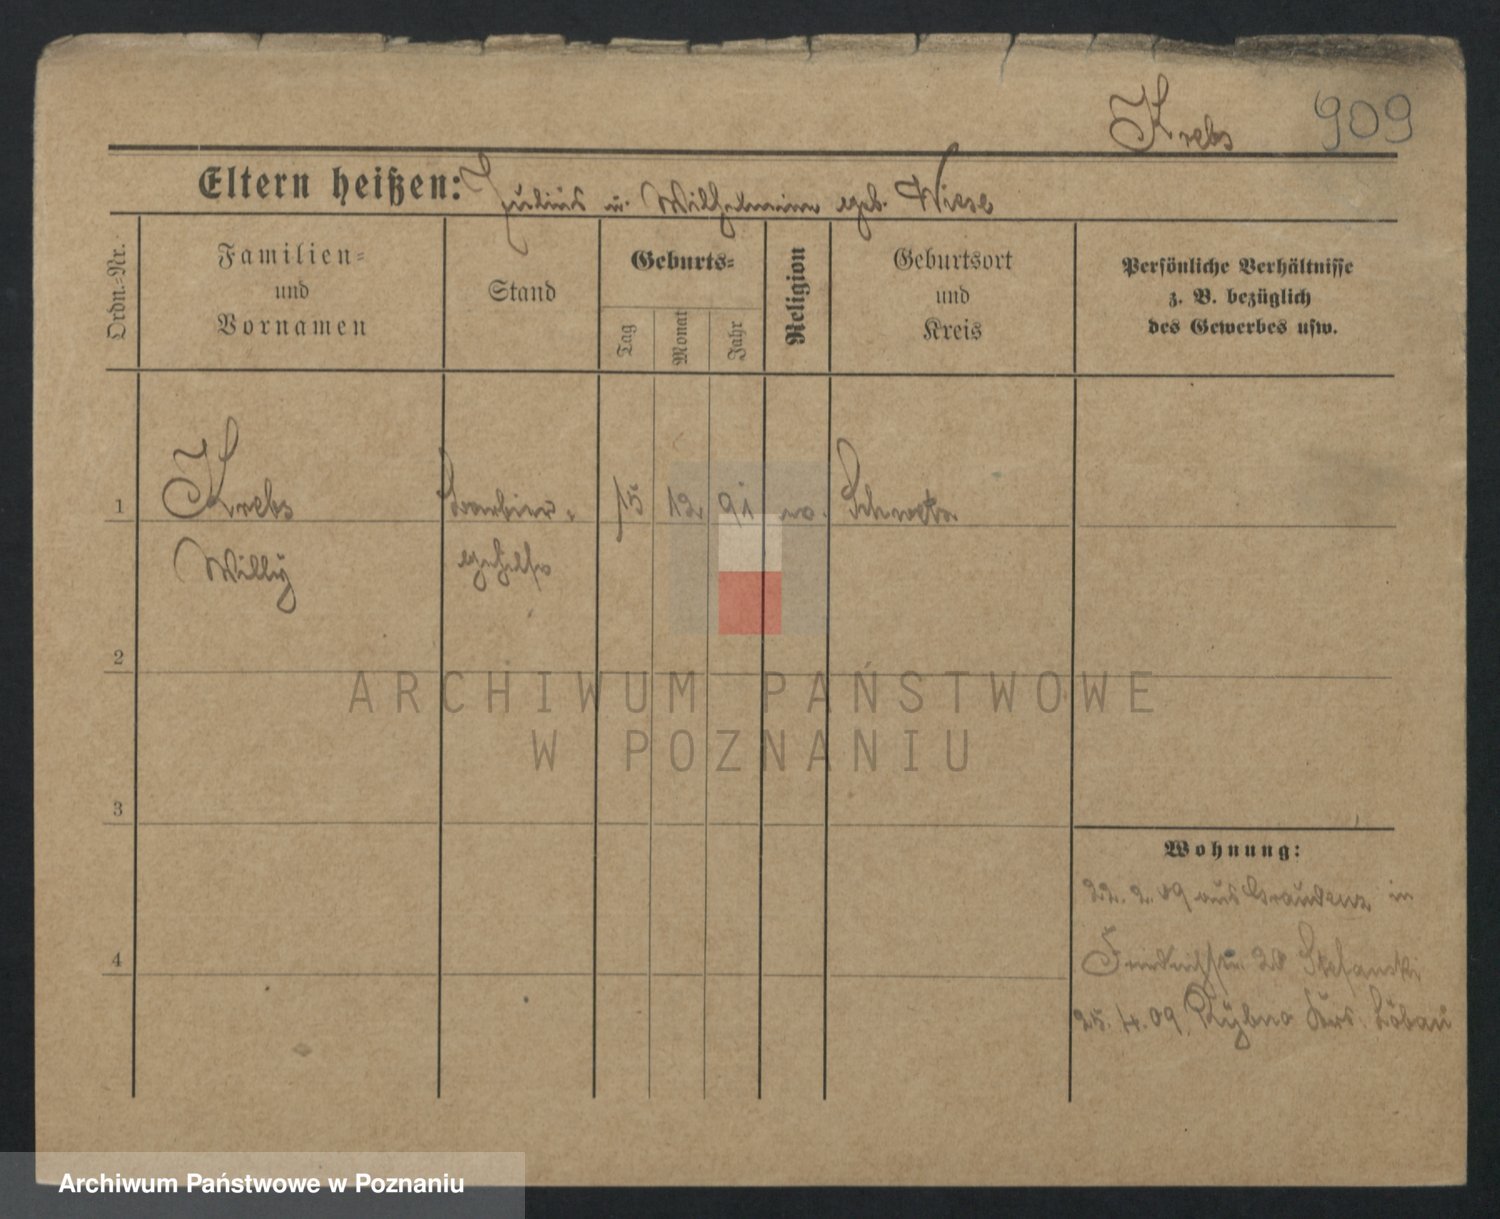 Krebs 909
Eltern heißen: Julius u. Wilhelmine geb. Wiese
Ordn.=Nr.
Familien=
und
Vornamen
Stand
Geburts=
Tag
Monat
Jahr
Religion
Geburtsort
und
Kreis
Persönliche Verhältnisse
z. B. bezüglich
des Gewerbes usw.
1 Krebs Barbier- 15 12 91 ev. Schwetz
Willy gehilfe
2
ARCHIWUM PAŃSTWOWE
W POZNANIU
3
Wohnung:
22. 2. 09 aus Graudenz in
4 Friedrichstr. 28 Stefanski
25. 4. 09 Rybno Krs. Löbau
Archiwum Państwowe w Poznaniu